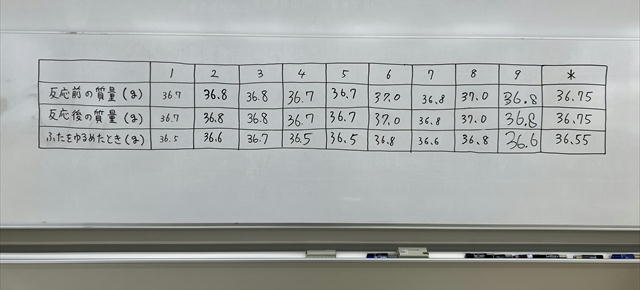 1 2 3 4 5 6 7 8 9 *
反応前の質量(g) 36.7 36.8 36.8 36.7 36.7 37.0 36.8 37.0 36.8 36.75
反応後の質量(g) 36.7 36.8 36.8 36.7 36.7 37.0 36.8 37.0 36.8 36.75
ふたをゆるめたとき(g) 36.5 36.6 36.7 36.5 36.5 36.8 36.6 36.8 36.6 36.55